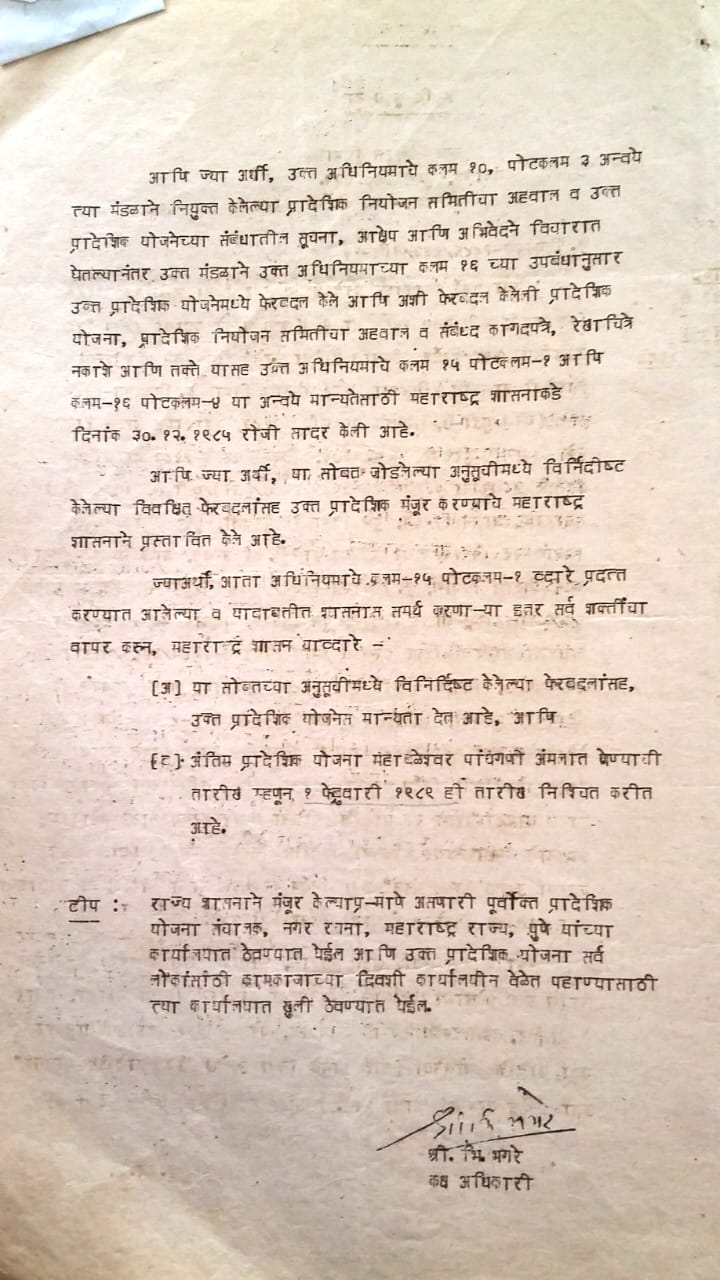 आणि ज्या अर्थी, उक्त अधिनियमाचे कलम १०, पोटकलम ३ अन्वये
त्या मंडळाने नियुक्त केलेल्या प्रादेशिक नियोजन समितीचा अहवाल व उक्त
प्रादेशिक योजनेच्या संबंधातील सूचना, आक्षेप आणि अभिवेदने विचारात
घेतल्यानंतर उक्त मंडळाने उक्त अधिनियमाच्या कलम १६ च्या उपबंधानुसार
उक्त प्रादेशिक योजनेमध्ये फेरबदल केले आणि अशी फेरबदल केलेली प्रादेशिक
योजना, प्रादेशिक नियोजन समितीचा अहवाल व संबंध्द कागदपत्रे, रेखाचित्रे
नकाशे आणि तक्ते यासह उक्त अधिनियमाचे कलम १५ पोटकलम-१ आणि
कलम-१६ पोटकलम-४ या अन्वये मान्यतेसाठी महाराष्ट्र शासनाकडे
दिनांक ३०. १२. १९८५ रोजी सादर केली आहे.
आणि ज्या अर्थी, या सोबत जोडलेल्या अनुसूचीमध्ये विर्निदीष्ट
केलेल्या विवक्षित फेरबदलांसह उक्त प्रादेशिक मंजूर करण्याचे महाराष्ट्र
शासनाने प्रस्तावित केले आहे.
ज्याअर्थी, आता अधिनियमाचे कलम-१५ पोटकलम-१ व्दारे प्रदत्त
करण्यात आलेल्या व याबाबतीत शासनास समर्थ करणा-या इतर सर्व शक्तींचा
वापर करून, महाराष्ट्र शासन याव्दारे -
[अ] या सोबतच्या अनुसूचीमध्ये विनिर्दिष्ट केलेल्या फेरबदलांसह,
उक्त प्रादेशिक योजनेस मान्यता देत आहे, आणि
[ब] अंतिम प्रादेशिक योजना महाबळेश्वर पांचगणी अंमलात येण्याची
तारीख म्हणून १ फेब्रुवारी १९८९ ही तारीख निश्चित करीत
आहे.
टीप : राज्य शासनाने मंजूर केल्याप्र-माणे असणारी पूर्वोक्त प्रादेशिक
योजना संचालक, नगर रचना, महाराष्ट्र राज्य, पुणे यांच्या
कार्यालयात ठेवण्यात येईल आणि उक्त प्रादेशिक योजना सर्व
लोकांसाठी कामकाजाच्या दिवशी कार्यालयीन वेळेत पहाण्यासाठी
त्या कार्यालयात खुली ठेवण्यात येईल.
श्री. भि. भगरे
कक्ष अधिकारी